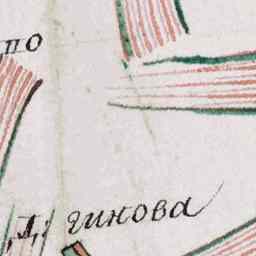 по
д, гинова